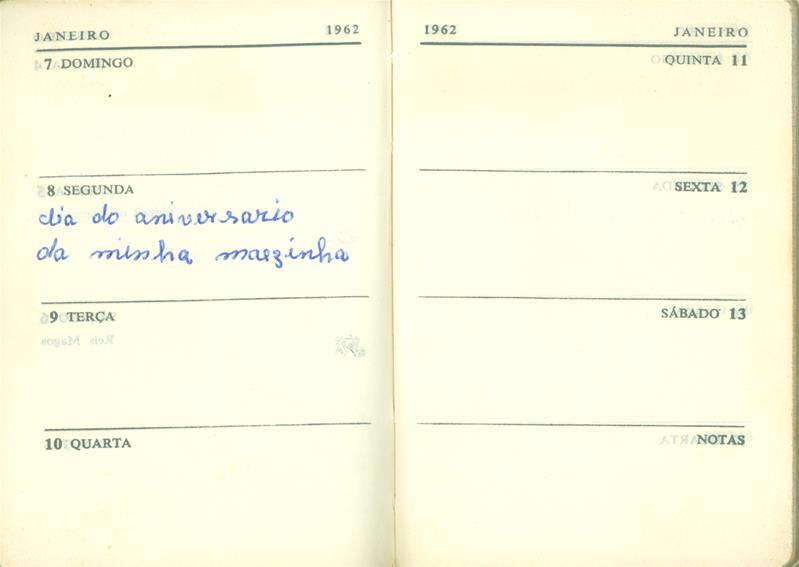 JANEIRO 1962
7 DOMINGO
8 SEGUNDA
dia do aniversario
da minha maezinha
9 TERÇA
10 QUARTA
1962 JANEIRO
QUINTA 11
SEXTA 12
SÁBADO 13
NOTAS